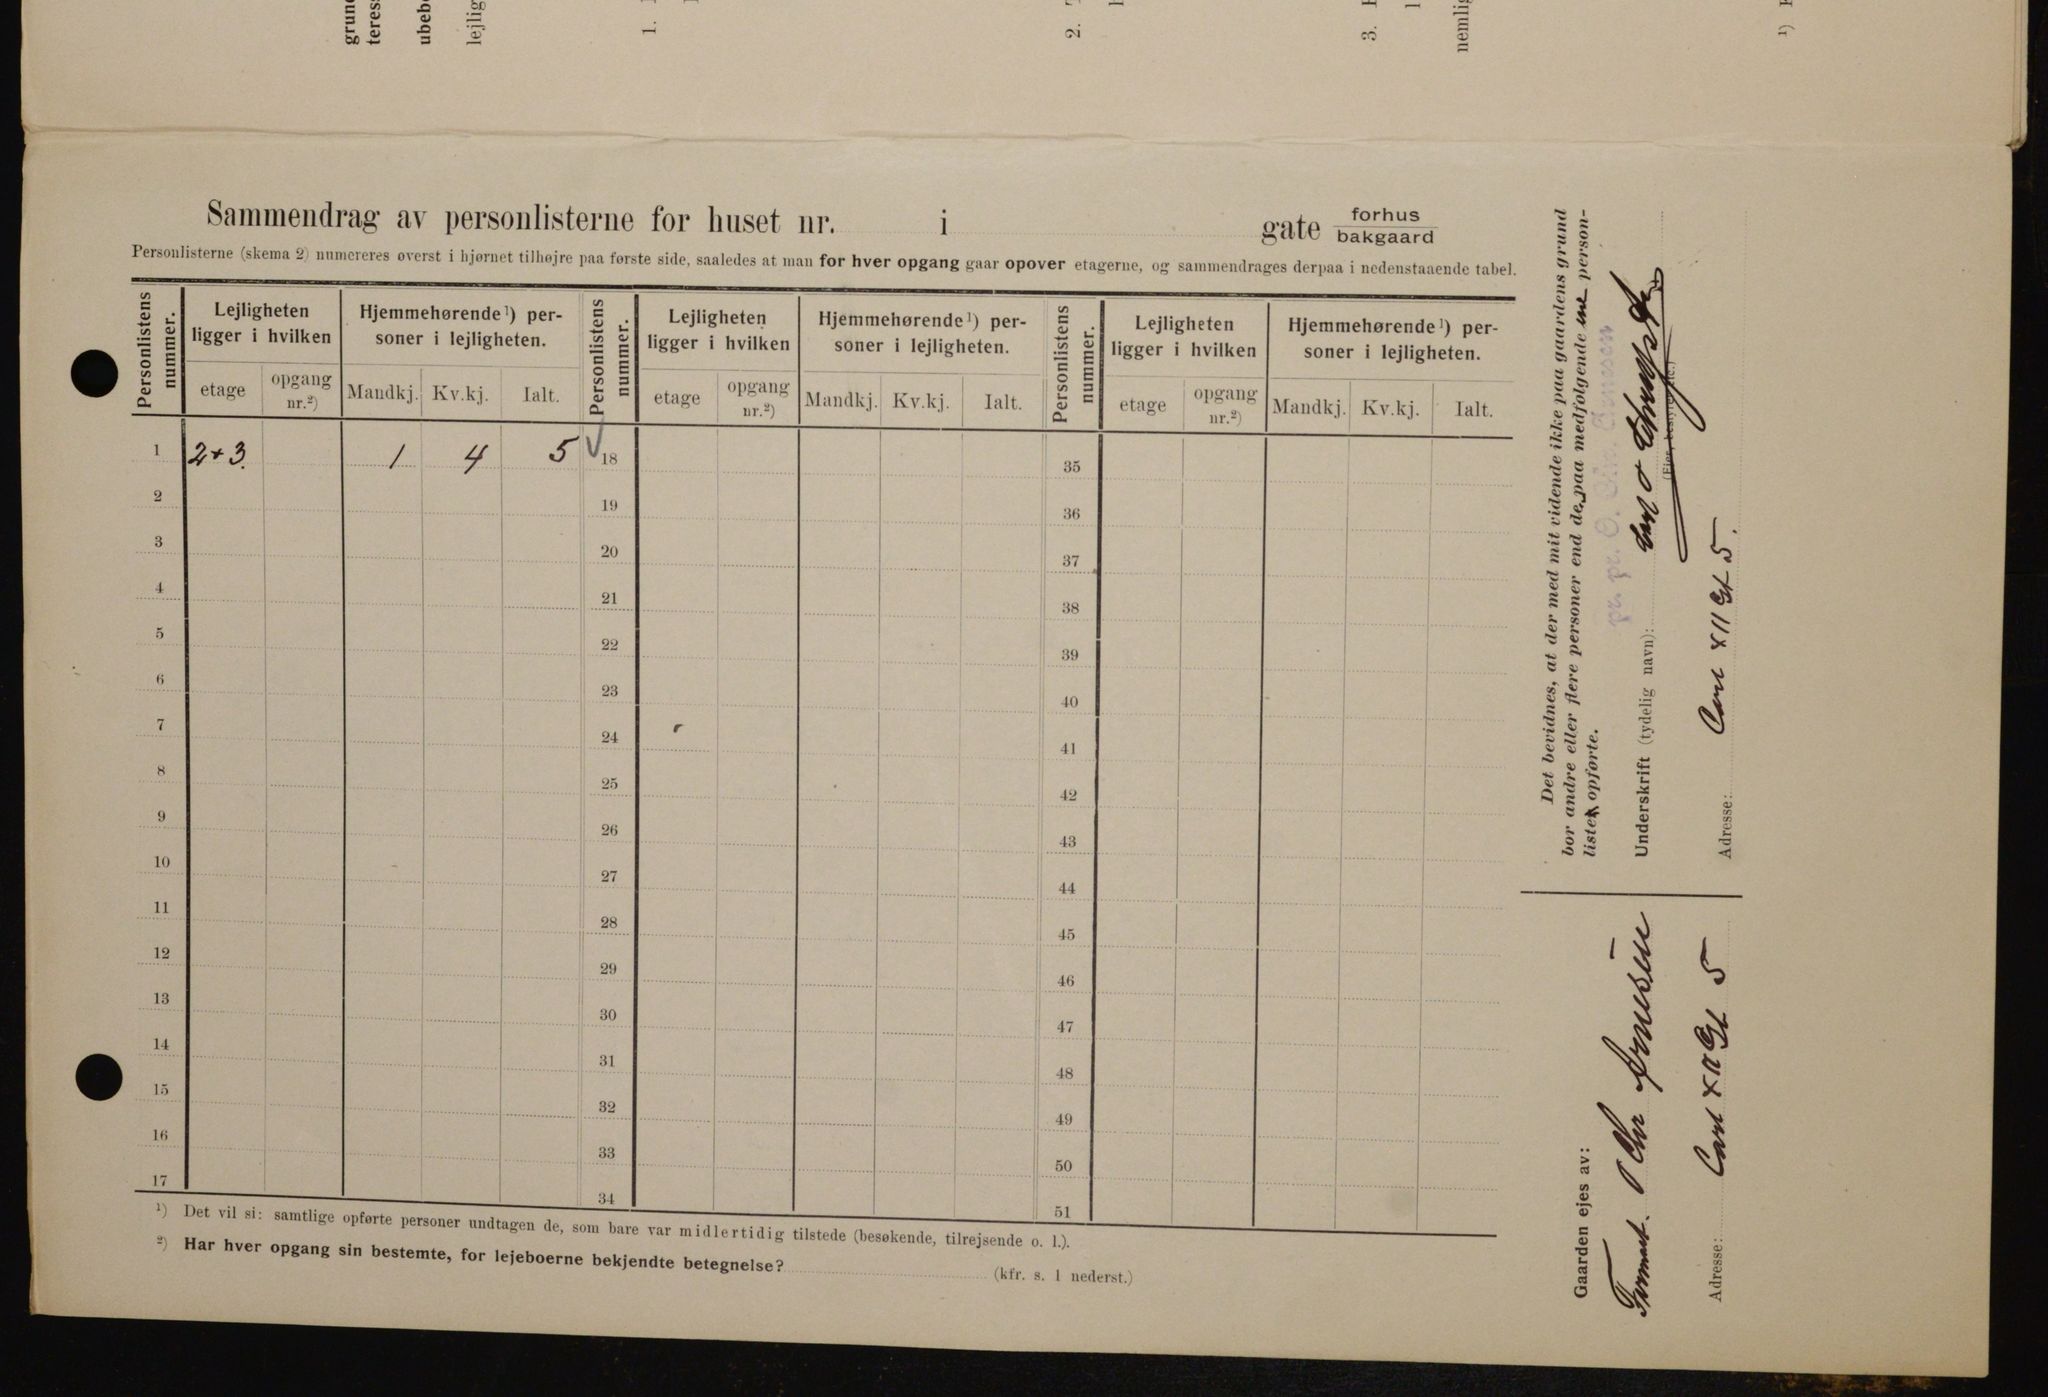 grun
teres
ubeb
lejlig
1.
2.
3.
nemlig
1)
Sammendrag av personlisterne for huset nr. i gate forhus
bakgaard
Personlisterne (skema 2) numereres øverst i hjørnet tilhøjre paa første side, saaledes at man for hver opgang gaar opover etagerne, og sammendrages derpaa i nedenstaaende tabel.
Personlistens nummer. Lejligheten ligger i hvilken Hjemmehørende 1) personer i lejligheten. Personlistens nummer. Lejligheten ligger i hvilken Hjemmehørende 1) personer i lejligheten. Personlistens nummer. Lejligheten ligger i hvilken Hjemmehørende 1) personer i lejligheten.
etage opgang nr.2) Mandkj. Kv.kj. Ialt. etage opgang nr.2) Mandkj. Kv.kj. Ialt. etage opgang nr.2) Mandkj. Kv.kj. Ialt.
1 2+3. 1 4 5 18 35
2 19 36
3 20 37
4 21 38
5 22 39
6 23 40
7 24 41
8 25 42
9 26 43
10 27 44
11 28 45
12 29 46
13 30 47
14 31 48
15 32 49
16 33 50
17 34 51
1) Det vil si: samtlige opførte personer undtagen de, som bare var midlertidig tilstede (besøkende, tilrejsende o. l.).
2) Har hver opgang sin bestemte, for lejeboerne bekjendte betegnelse? (kfr. s. 1 nederst.)
Det bevidnes, at der med mit vidende ikke paa gaardens grund
bor andre eller flere personer end de paa medfølgende person-
lister opførte.
pr. pr. O. Chr. Arnesen
Underskrift (tydelig navn):
(Ejer, bestyrer etc.)
Adresse: Carl XII Gt 5.
Gaarden ejes av:
O Chr Arnesen
Adresse: Carl XII Gt 5